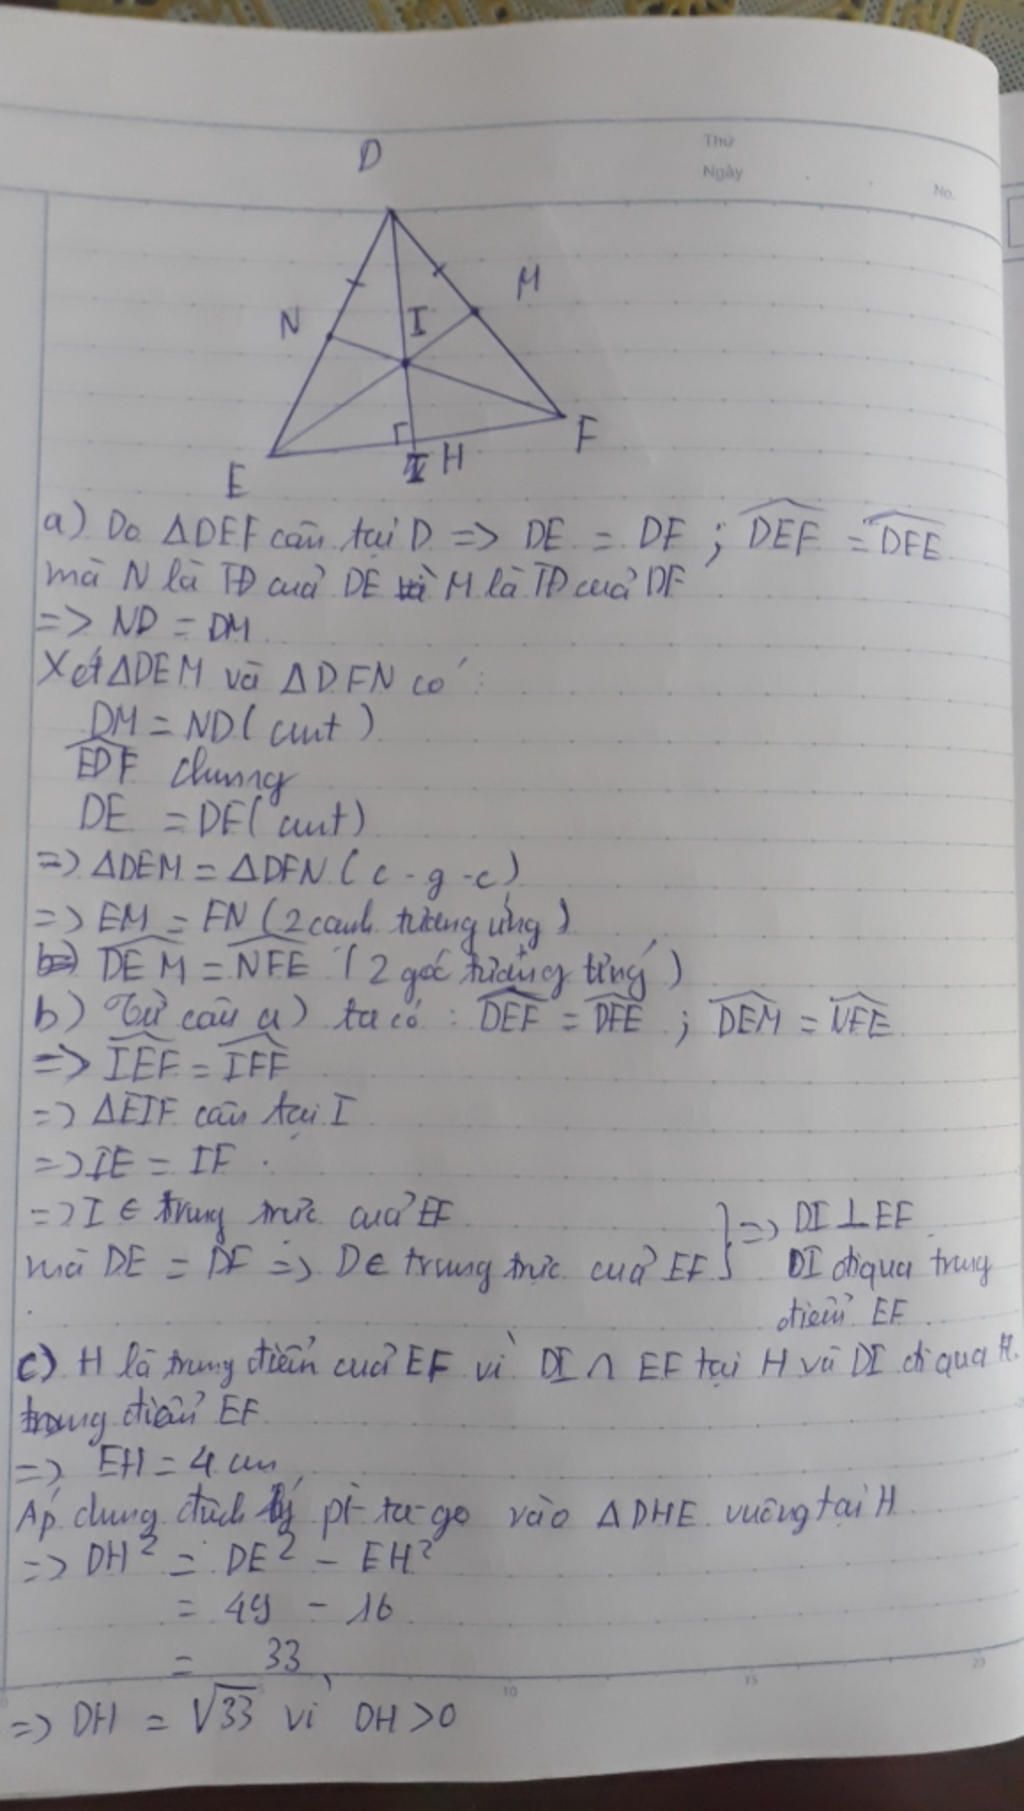 Thứ
Ngày
No.
D
N
I
M
E
H
F
a) Do ΔDEF cân tại D => DE = DF ; \widehat{DEF} = \widehat{DFE}
mà N là TĐ cuả DE và M là TĐ cuả DF
=> ND = DM
Xét ΔDEM và ΔDFN có :
DM = ND ( cmt )
\widehat{EDF} chung
DE = DF ( cmt )
=> ΔDEM = ΔDFN ( c - g - c )
=> EM = FN ( 2 cạnh tương ứng )
=> \widehat{DEM} = \widehat{NFE} ( 2 góc tương ứng )
b) Từ câu a) ta có : \widehat{DEF} = \widehat{DFE} ; \widehat{DEM} = \widehat{NFE}
=> \widehat{IEF} = \widehat{IFE}
=> ΔEIF cân tại I
=> IE = IF .
=> I ∈ trung trực cuả EF
mà DE = DF => D ∈ trung trực cuả EF } => DI ⊥ EF
DI đi qua trung
điểm EF
c) H là trung điểm cuả EF vì DI ∩ EF tại H và DI đi qua H.
trung điểm EF
=> EH = 4 cm
Áp dụng định lý pi-ta-go vào ΔDHE vuông tại H
=> DH² = DE² - EH²
= 49 - 16
= 33
5 10 15 20
=> DH = √33 vì DH > 0